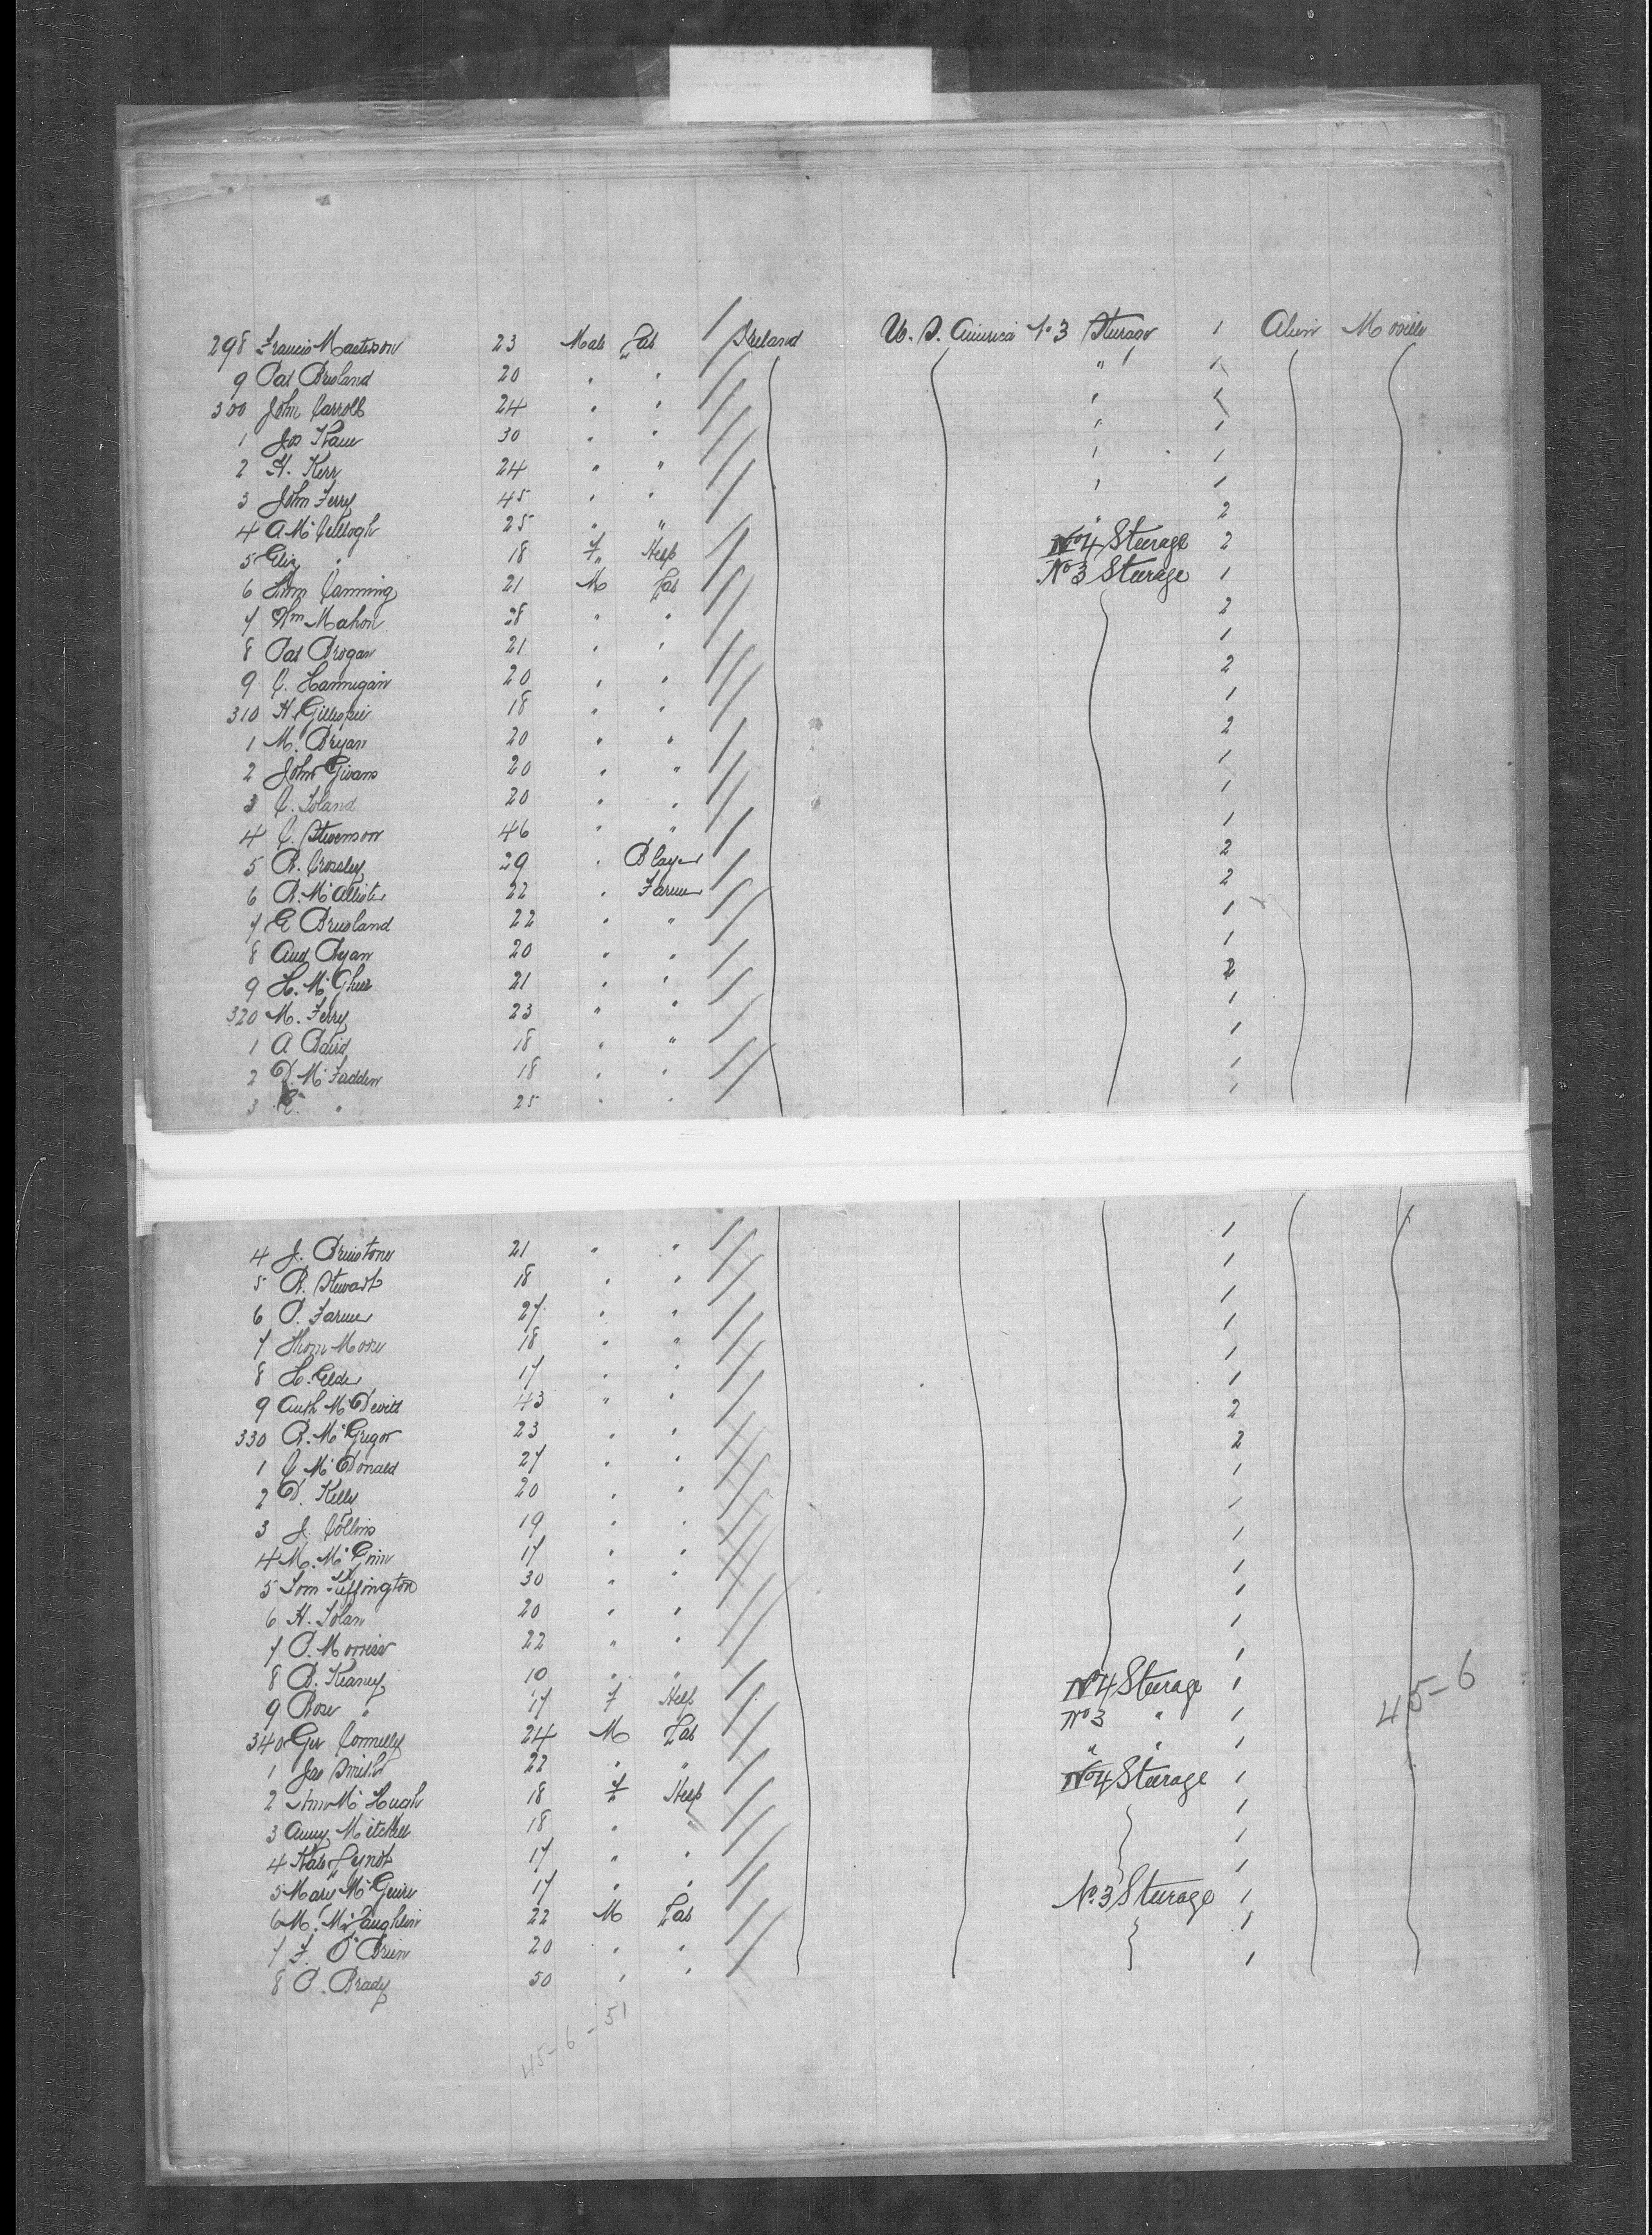 298 Francis Masterson 23 Male Lab Ireland U. S. America No 3 Steerage 1 Alien Moville
9 Pat Bresland 20 " " " 1
300 John Carroll 24 " " " 1
1 Jos Kane 30 " " " 1
2 H. Kerr 24 " " " 1
3 John Ferry 45 " " " 1
4 A McCullogh 25 " " " 2
5 Eliz " 18 F Help No 4 Steerage 2
6 Thom Canning 21 M Lab No 3 Steerage 1
7 Wm Mahon 28 " " 2
8 Pat Brogan 21 " " 1
9 C. Hannigan 20 " " 2
310 H Gillespie 18 " " 1
1 M. Bryan 20 " " 2
2 John Givans 20 " " 1
3 C. Toland 20 " " 1
4 C. Stevenson 46 " " 1
5 R. Crossley 29 " 2
6 R. McAllister 22 " Farmer 2
7 E Bresland 22 " " 1
8 And Ryan 20 " " 1
9 H. McGhee 21 " " 2
320 M. Ferry 23 " " 1
1 A Baird 18 " " 1
2 D. McFadden 18 " " 1
3 " 25 " " 1
4 J. 21 " " 1
5 R. Stewart 18 " " 1
6 P. Farmer 27 " " 1
7 Thom Moore 18 " " 1
8 H. Elder 17 " " 1
9 McDevitt 43 " " 1
330 R. McGregor 23 " " 2
1 C McDonald 27 " " 2
2 D. Kelly 20 " " 1
3 J. Collins 19 " " 1
4 M. 17 " " 1
5 Tom 30 " " 1
6 H. Tolan 20 " " 1
7 P. Morrison 22 " " 1
8 B. Keaney 10 " " 1
9 Rose " 17 F Help No 4 Steerage 1
340 Geo Connelly 24 M Lab No 3 " 1
1 Jas Smith 22 " " " " 1
2 Ann McHugh 18 F Help No 4 Steerage 1
3 Anny Mitchell 18 " " 1
4 Kate Lynott 17 " " 1
5 Mary McGuire 17 " " 1
6 M. McLaughlin 22 M Lab No. 3 Steerage 1
7 F. O'Brien 20 " " 1
8 P. Brady 50 " " 1
45-6
45-6-51